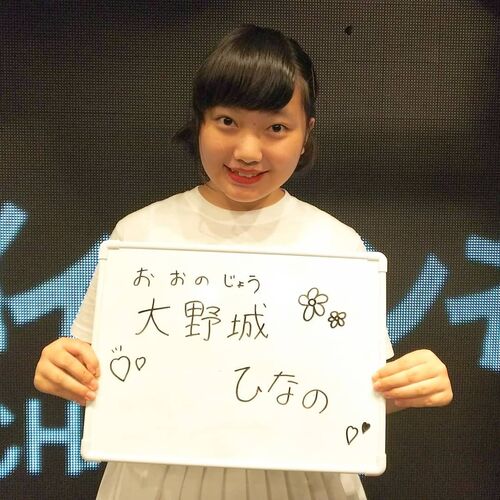 おおのじょう
大野城
ひなの
CH